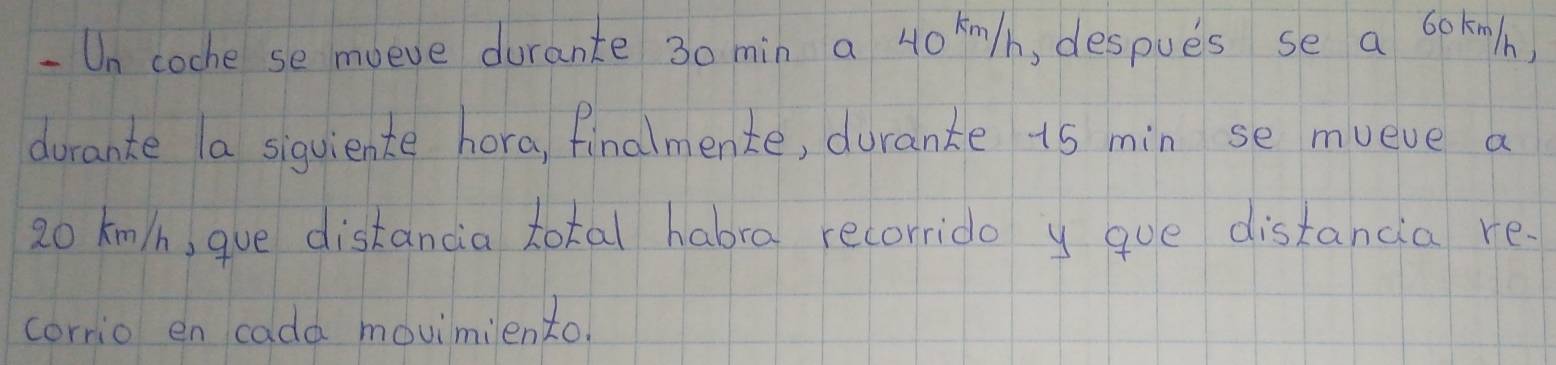 - Un coche se mueve durante 30 min a 40 km/h, después se a 60 km/h,
durante la siguiente hora, finalmente, durante 15 min se mueve a
20 km/h, que distancia total habra recorrido y que distancia re-
corrio en cada movimiento.